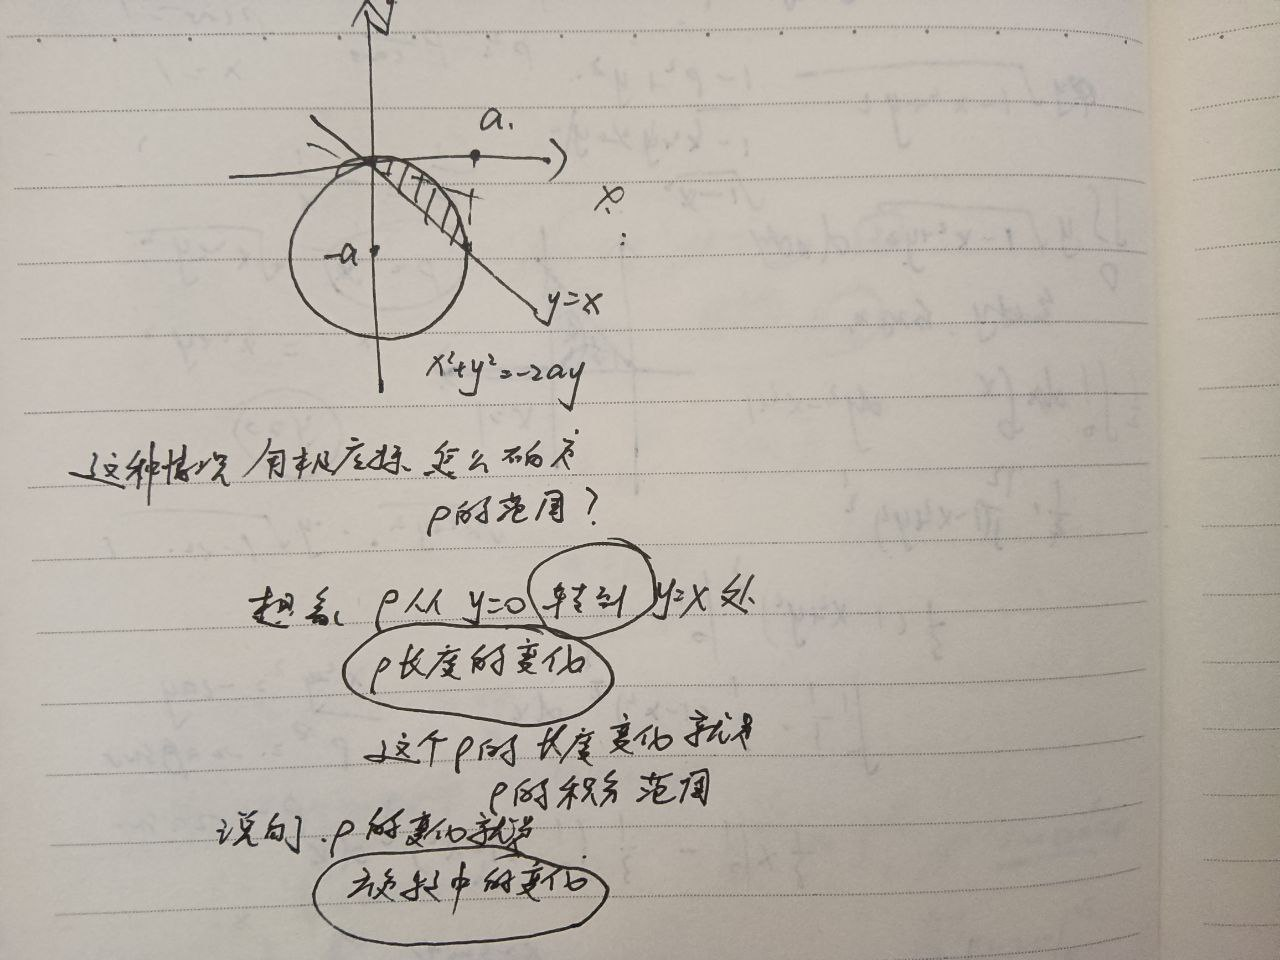 y
a.
x
-a
y=x
x²+y²=-2ay
这种情况 用极座标 怎么确定
ρ的范围?
想象 ρ从 y=0 转到 y=x 处
ρ长度的变化
这个ρ的长度变化就是
ρ的积分范围
说白了.ρ的变化就是
旋转中的变化